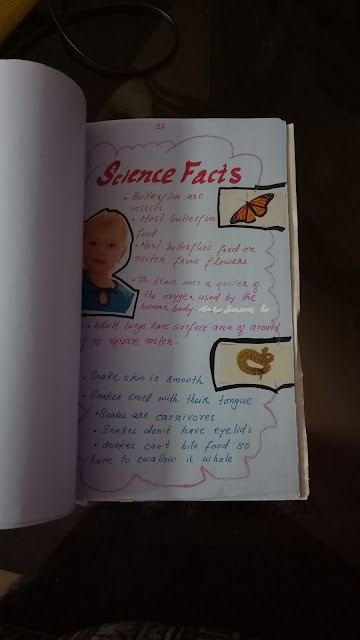 11
Science Facts
• Butterflies are
insects
• Most butterflies
feed
• Most butterflies feed on
necter from flowers
• The brain uses a quater of
the oxygen used by the
human body.
• adult lungs have surface area of around
70 square meter.
• Snake skin is smooth
• Snakes smel with their tongue
• Snakes are carnivores
• Snakes don't have eyelids
• Snakes can't bite food so
have to swallow it whole